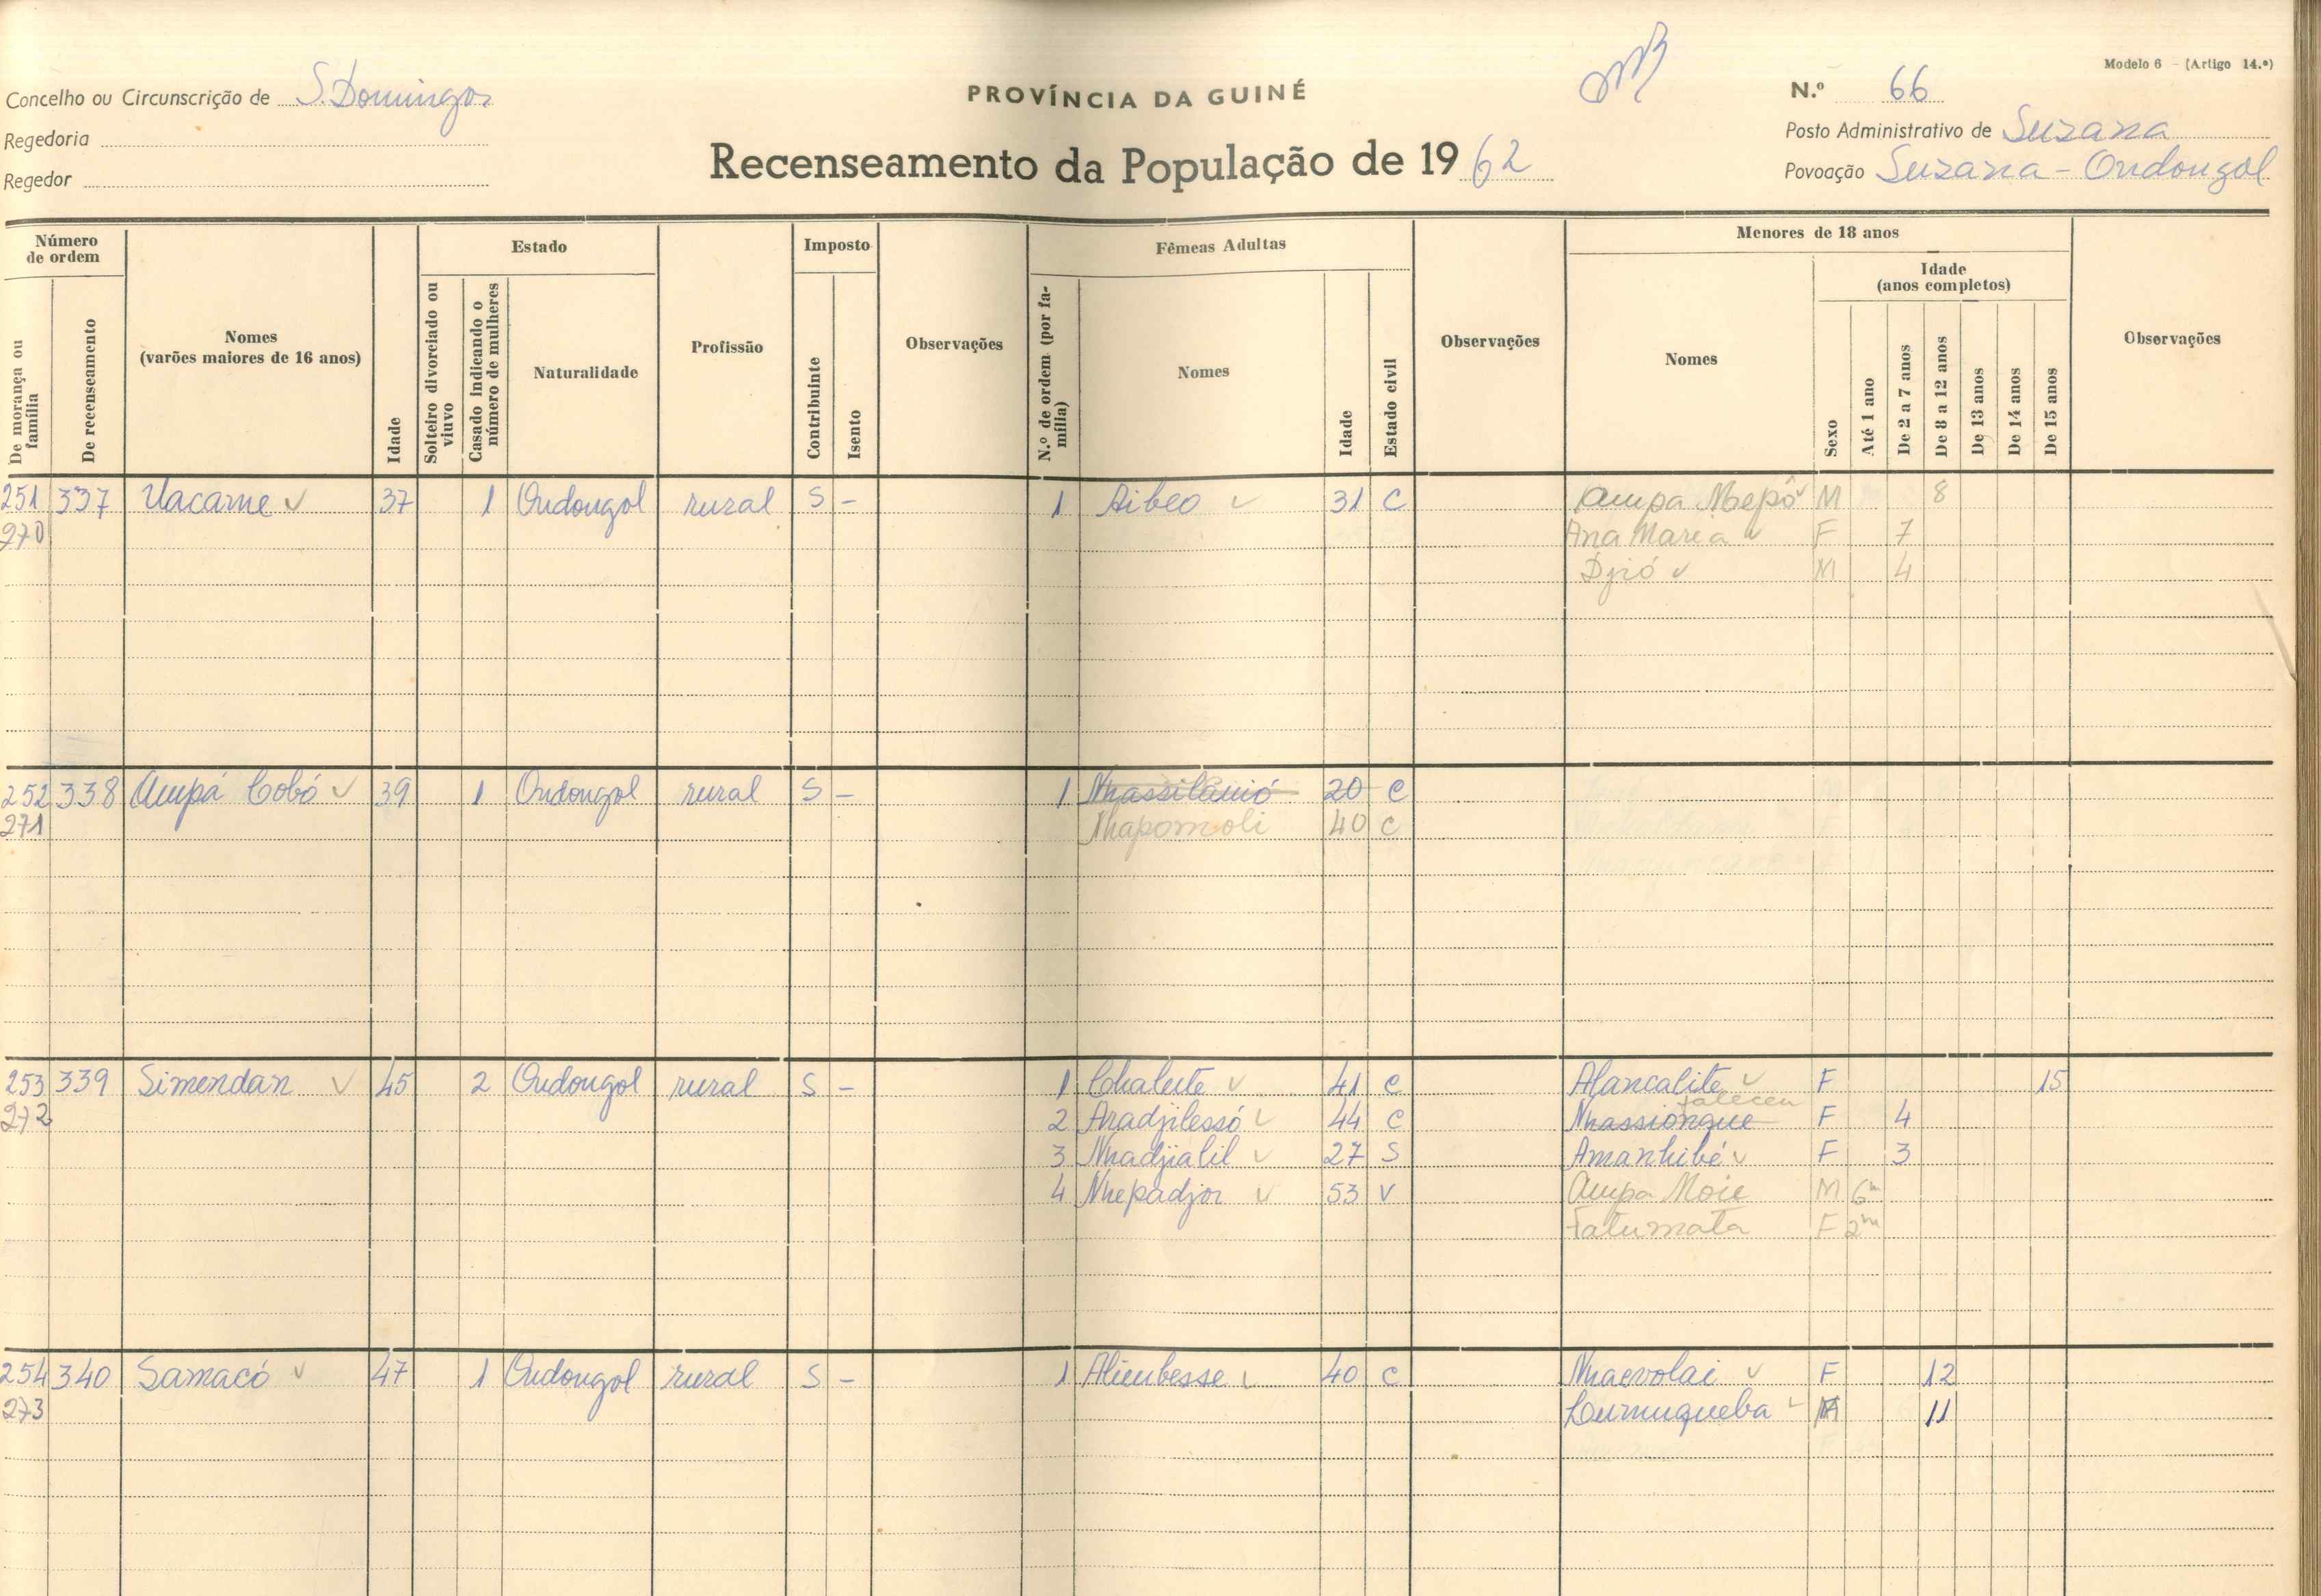 Modelo 6 – (Artigo 14.º)
Concelho ou Circunscrição de S. Domingos
PROVÍNCIA DA GUINÉ
N.º 66
Regedoria
Posto Administrativo de Suzana
Regedor
Recenseamento da População de 1962
Povoação Suzana - Ondongol
Número de ordem
De morança ou família
De recenseamento
Nomes
(varões maiores de 16 anos)
Idade
Estado
Solteiro divorciado ou viuvo
Casado indicando o número de mulheres
Naturalidade
Profissão
Imposto
Contribuinte
Isento
Observações
Fêmeas Adultas
N.º de ordem (por família)
Nomes
Idade
Estado civil
Observações
Menores de 18 anos
Nomes
Sexo
Idade
(anos completos)
Até 1 ano
De 2 a 7 anos
De 8 a 12 anos
De 13 anos
De 14 anos
De 15 anos
Observações
251 337 Uacame 37 1 Ondongol rural S - 1 Aibeo 31 C Ampa Mepô M 8
270 Ana Maria F 7
Djió M 4
252 338 Ampá Cobó 39 1 Ondongol rural S - 1 Nhassilamió 20 C
271 Nhapomoli 40 C
253 339 Simendan 45 2 Ondongol rural S - 1 Chaleite 41 C Alancalite F 15
faleceu
272 2 Aradjilessó 44 C Nhassiongue F 4
3 Nhadjialil 27 S Amanhibé F 3
4 Nhepadjor 53 V Ampa Moie M 6m
Fatumata F 2m
254 340 Samacó 47 1 Ondongol rural S - 1 Alieubesse 40 C Nhaevolai F 12
273 Lumuqueba M 11